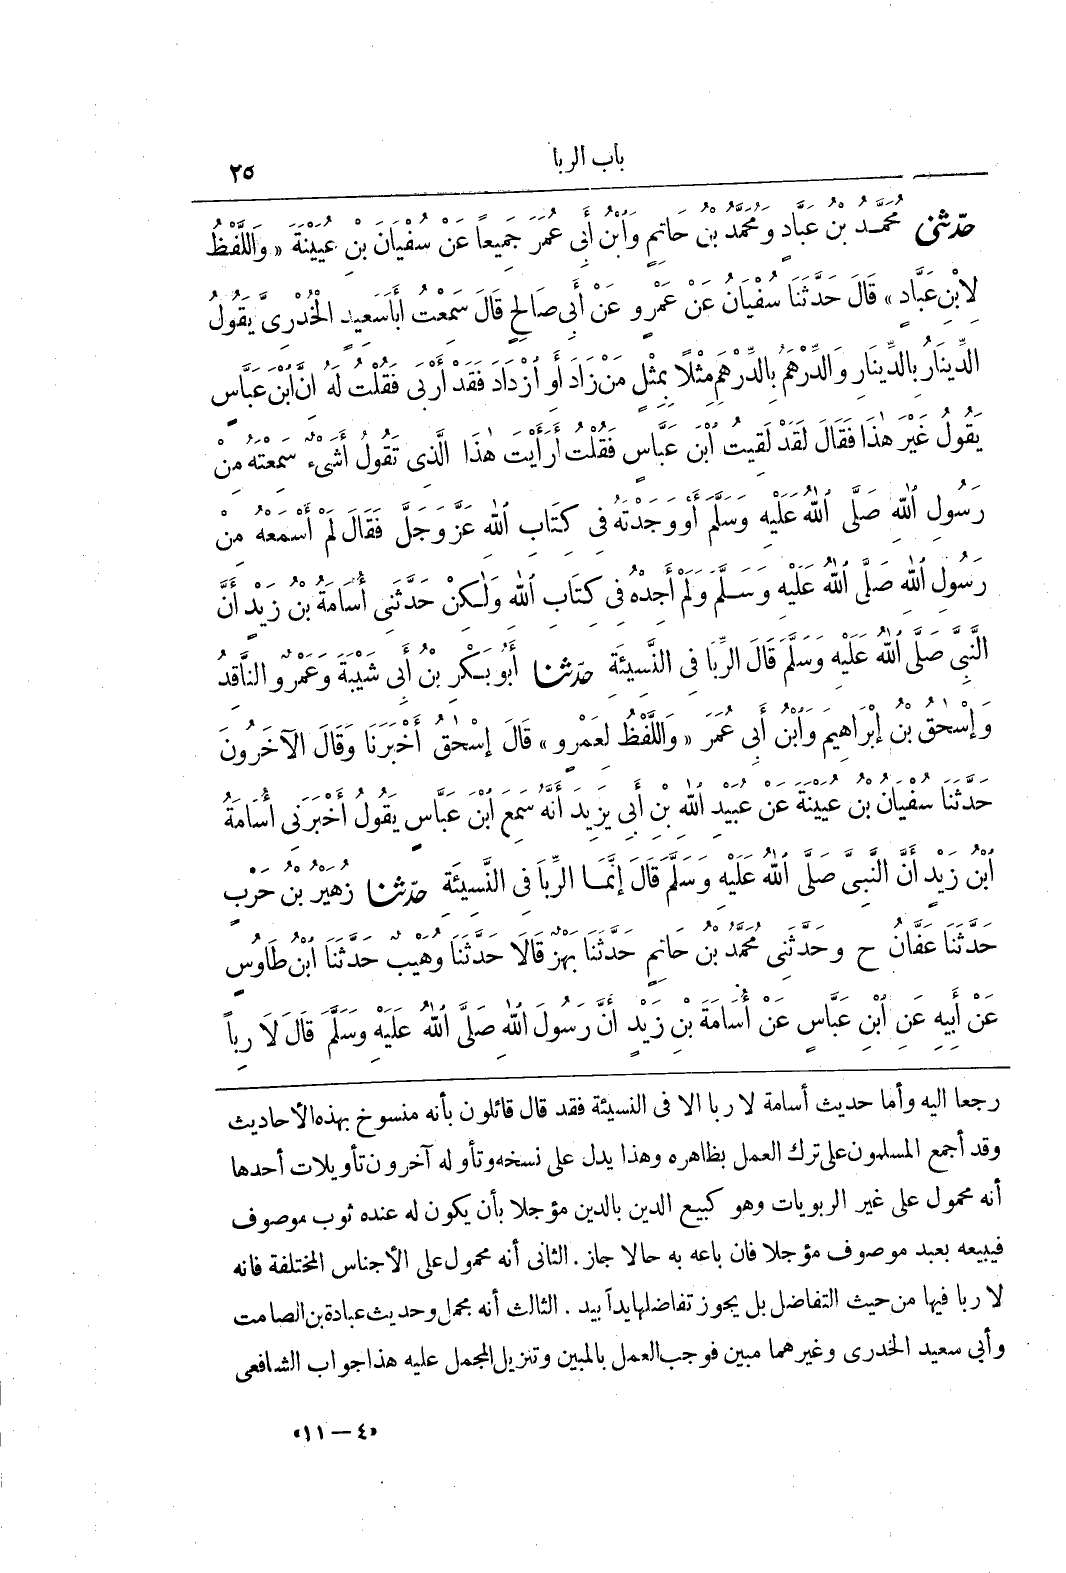 باب الربا
٢٥
حدّثنى مُحَمَّدُ بْنُ عَبَّادٍ وَمُحَمَّدُ بْنُ حَاتِمٍ وَٱبْنُ أَبِى عُمَرَ جَمِيعاً عَنْ سُفْيَانَ بْنِ عُيَيْنَةَ « وَٱللَّفْظُ
لِابْنِ عَبَّادٍ » قَالَ حَدَّثَنَا سُفْيَانُ عَنْ عَمْرٍو عَنْ أَبِى صَالِحٍ قَالَ سَمِعْتُ أَبَا سَعِيدٍ الْخُدْرِىَّ يَقُولُ
الدِّينَارُ بِالدِّينَارِ وَالدِّرْهَمُ بِالدِّرْهَمِ مِثْلًا بِمِثْلٍ مَنْ زَادَ أَوِ ٱزْدَادَ فَقَدْ أَرْبَى فَقُلْتُ لَهُ إِنَّ ٱبْنَ عَبَّاسٍ
يَقُولُ غَيْرَ هٰذَا فَقَالَ لَقَدْ لَقِيتُ ٱبْنَ عَبَّاسٍ فَقُلْتُ أَرَأَيْتَ هٰذَا الَّذِى تَقُولُ أَشَىْءٌ سَمِعْتَهُ مِنْ
رَسُولِ ٱللهِ صَلَّى ٱللهُ عَلَيْهِ وَسَلَّمَ أَوْ وَجَدْتَهُ فِى كِتَابِ ٱللهِ عَزَّ وَجَلَّ فَقَالَ لَمْ أَسْمَعْهُ مِنْ
رَسُولِ ٱللهِ صَلَّى ٱللهُ عَلَيْهِ وَسَلَّمَ وَلَمْ أَجِدْهُ فِى كِتَابِ ٱللهِ وَلٰكِنْ حَدَّثَنِى أُسَامَةُ بْنُ زَيْدٍ أَنَّ
النَّبِىَّ صَلَّى ٱللهُ عَلَيْهِ وَسَلَّمَ قَالَ الرِّبَا فِى النَّسِيئَةِ حدّثنا أَبُو بَكْرِ بْنُ أَبِى شَيْبَةَ وَعَمْرٌو النَّاقِدُ
وَإِسْحٰقُ بْنُ إِبْرَاهِيمَ وَٱبْنُ أَبِى عُمَرَ « وَاللَّفْظُ لِعَمْرٍو » قَالَ إِسْحٰقُ أَخْبَرَنَا وَقَالَ الْآخَرُونَ
حَدَّثَنَا سُفْيَانُ بْنُ عُيَيْنَةَ عَنْ عُبَيْدِ ٱللهِ بْنِ أَبِى يَزِيدَ أَنَّهُ سَمِعَ ٱبْنَ عَبَّاسٍ يَقُولُ أَخْبَرَنِى أُسَامَةُ
ٱبْنُ زَيْدٍ أَنَّ النَّبِىَّ صَلَّى ٱللهُ عَلَيْهِ وَسَلَّمَ قَالَ إِنَّمَا الرِّبَا فِى النَّسِيئَةِ حدّثنا زُهَيْرُ بْنُ حَرْبٍ
حَدَّثَنَا عَفَّانُ ح وَحَدَّثَنِى مُحَمَّدُ بْنُ حَاتِمٍ حَدَّثَنَا بَهْزٌ قَالَا حَدَّثَنَا وُهَيْبٌ حَدَّثَنَا ٱبْنُ طَاوُسٍ
عَنْ أَبِيهِ عَنِ ٱبْنِ عَبَّاسٍ عَنْ أُسَامَةَ بْنِ زَيْدٍ أَنَّ رَسُولَ ٱللهِ صَلَّى ٱللهُ عَلَيْهِ وَسَلَّمَ قَالَ لَا رِباً
رجعا اليه وأما حديث أسامة لا ربا الا فى النسيئة فقد قال قائلون بأنه منسوخ بهذه الأحاديث
وقد أجمع المسلمون على ترك العمل بظاهره وهذا يدل على نسخه وتأوله آخرون تأويلات أحدها
أنه محمول على غير الربويات وهو كبيع الدين بالدين مؤجلا بأن يكون له عنده ثوب موصوف
فيبيعه بعبد موصوف مؤجلا فان باعه به حالا جاز . الثانى أنه محمول على الأجناس المختلفة فانه
لا ربا فيها من حيث التفاضل بل يجوز تفاضلها يداً بيد . الثالث أنه مجمل وحديث عبادة بن الصامت
وأبى سعيد الخدرى وغيرهما مبين فوجب العمل بالمبين وتنزيل المجمل عليه هذا جواب الشافعى
«٤ — ١١»